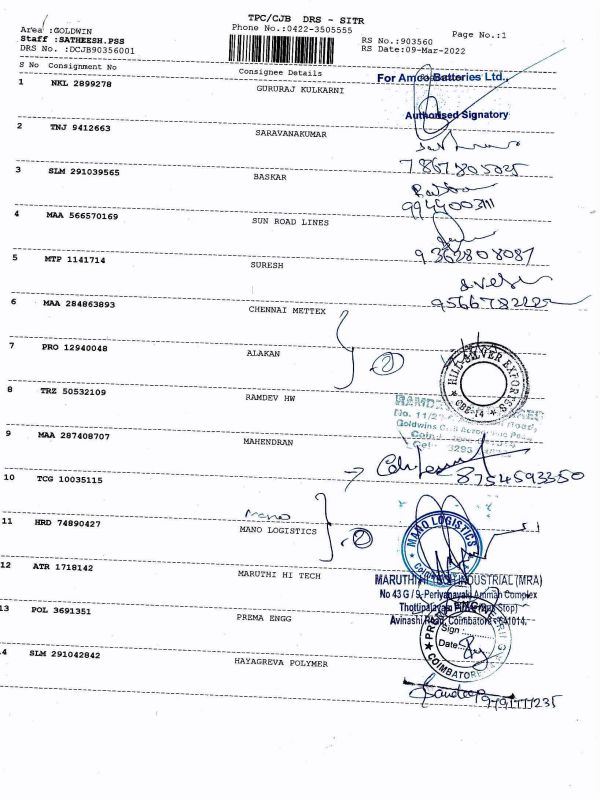 TPC/CJB DRS - SITR
Area :GOLDWIN
Phone No.:0422-3505555
Page No.:1
Staff :SATHEESH.PSS
RS No.:903560
DRS No. :DCJB90356001
RS Date:09-Mar-2022
S No Consignment No Consignee Details
For Amco Batteries Ltd.,
1 NKL 2899278 GURURAJ KULKARNI
Authorised Signatory
2 TNJ 9412663 SARAVANAKUMAR
7867805025
3 SLM 291039565 BASKAR
9944003111
4 MAA 566570169 SUN ROAD LINES
9362808087
5 MTP 1141714 SURESH
6 MAA 284863893 CHENNAI METTEX
7 PRO 12940048 ALAKAN
2
HILL SILVER EXPORTS
CBE-14
8 TRZ 50532109 RAMDEV HW
9 MAA 287408707 MAHENDRAN
8754593350
10 TCG 10035115
Mano
11 HRD 74890427 MANO LOGISTICS
2
MANO LOGISTICS
12 ATR 1718142 MARUTHI HI TECH
MARUTHI HI TECH INDUSTRIAL (MRA)
No 43 G / 9, Periyanayaki Amman Complex
Avinashi Road, Coimbatore - 641014.
13 POL 3691351 PREMA ENGG
Sign :
Date:
COIMBATORE
14 SLM 291042842 HAYAGREVA POLYMER
Sandeep